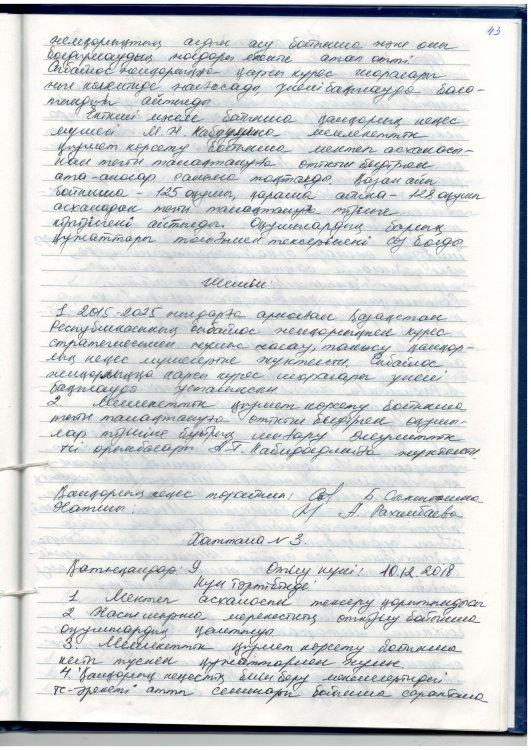 43
жемқорлықтың алдын алу бойынша және оны
болдырмаудың жолдары екенін атап өтті.
Сыбайлас жемқорлыққа қарсы курес шаралары
үнемі бақылауда бола-
тындығын айтты.
Екінші мәселе бойынша қамқорлық кеңес
мүшесі М.Н. мемлекеттік
қызмет көрсету бойынша мектеп асханасы-
нан тегін тамақтануға өтініш білдірген
ата-аналар санына тоқталды. Қазан айы
бойынша - 125 оқушы, қараша айына - 128 оқушы
асханадан тегін тамақтануға тізімге
кіргізілгені айтылды. Оқушылардың барлық
құжаттары толығымен тексерілгені сөз болды
Шешім:
1 2015-2025 жылдарға арналған Қазақстан
Республикасының сыбайлас жемқорлықпен курес
стратегиясымен жұмыс жасау, танысу қамқор-
лық кеңес мүшелеріне жүктелсін. Сыбайлас
жемқорлыққа қарсы курес шаралары үнемі
бақылауда ұсталынсын.
2 Мемлекеттік қызмет көрсету бойынша
тегін тамақтануға өтініш білдірген оқушы-
лар тізіміне бұйрық шығару әлеуметтік
ісі орынбасары А.Т. жүктелсін.
Қамқорлық кеңес төрайымы: Б
Хатшы: А. Рахимбаева
Хаттама N 3.
Қатысқандар: 9 Өткізу күні: 10.12.2018
Күн тәртібінде:
1 Мектеп асханасын тексеру қорытындысы
2 Жаңа жылдық мерекесінің өткізілу бойынша
оқушылардың қамтылуы
3. Мемлекеттік қызмет көрсету бойынша
келіп түскен құжаттармен жұмыс
4. "Қамқорлық кеңестің білім беру мекемелеріндегі
іс-әрекеті" атты семинары бойынша сараптама